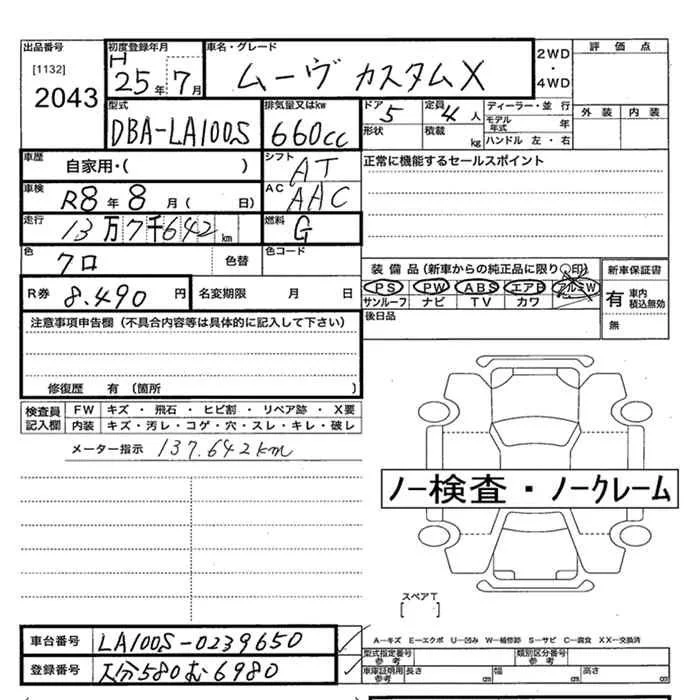 出品番号 初度登録年月 車名・グレード 2WD・4WD 評価点
[1132] 2043 H 25年 7月 ムーヴ カスタムX
外装 内装
型式 排気量又はkw ドア 5 定員 4人 ディーラー・並行
DBA-LA100S 660cc 形状 積載 kg モデル年式 年
ハンドル 左・右
車歴 自家用・( ) シフト AT 正常に機能するセールスポイント
車検 R8年 8月( 日) AC AAC
走行 13万7千642km 燃料 G
色 クロ 色替 色コード
装備品(新車からの純正品に限り○印) 新車保証書
R券 8.490円 名変期限 月 日 PS PW ABS エアB アルミW 有 車内 積込無効
サンルーフ ナビ TV カワ
注意事項申告欄(不具合内容等は具体的に記入して下さい) 後日品 無
修復歴 有(箇所 )
検査員記入欄 FW キズ・飛石・ヒビ割・リペア跡・X要
内装 キズ・汚レ・コゲ・穴・スレ・キレ・破レ
メーター指示 137.642km
ノー検査・ノークレーム
スペアT
[ ]
車台番号 LA100S-0239650 A―キズ E―エクボ U―凹み W―補修跡 S―サビ C―腐食 XX―交換済
型式指定番号 参考 類別区分番号 参考
登録番号 大分580む6980 車庫証明用参考 長さ cm 幅 cm 高さ cm